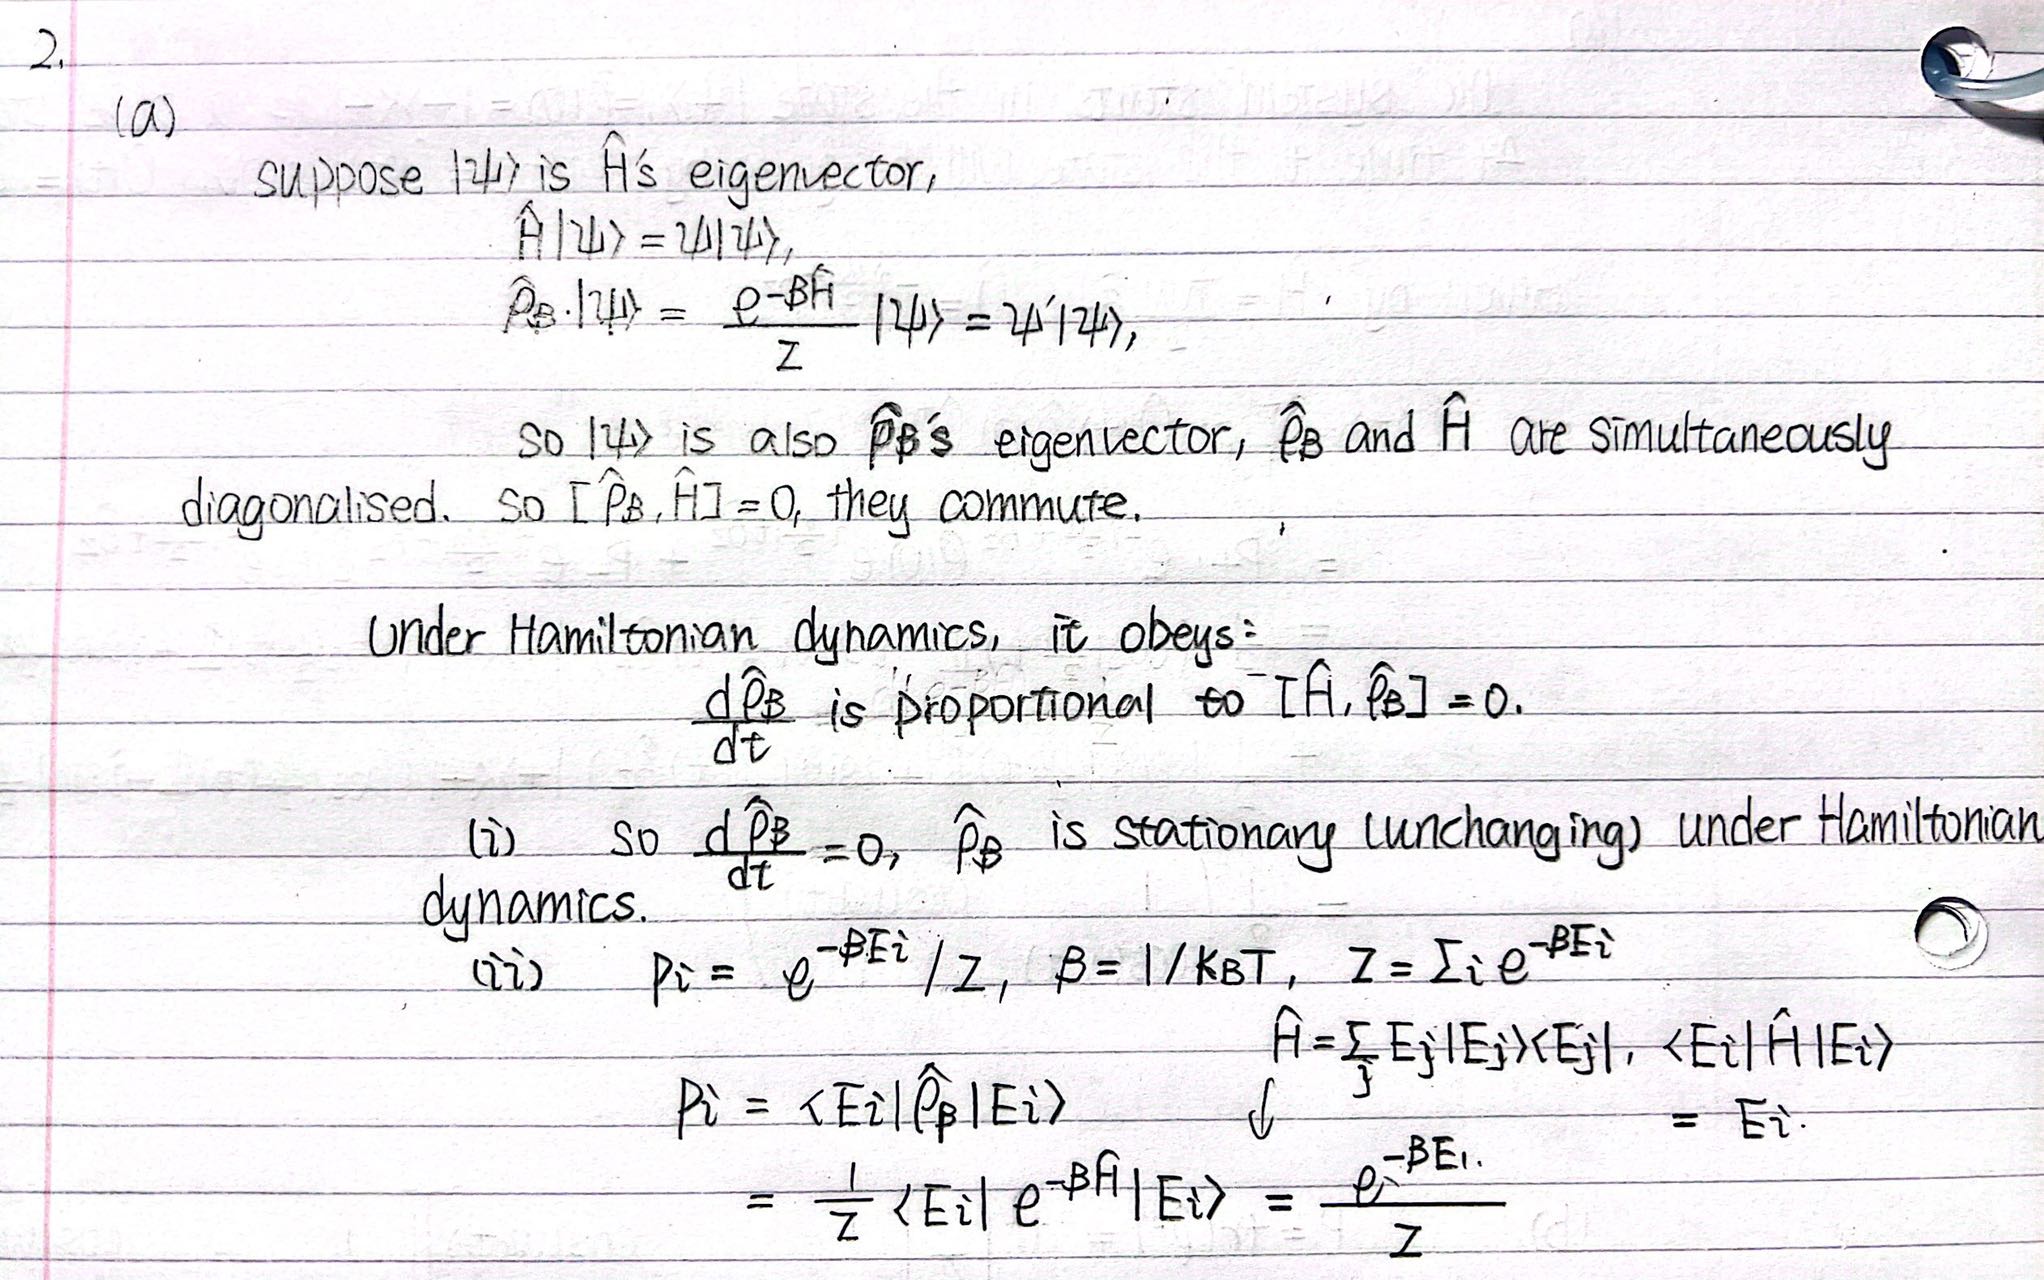 2.
(a)
suppose |ψ⟩ is Ĥ's eigenvector,
Ĥ|ψ⟩ = ψ|ψ⟩,
ρ̂_B·|ψ⟩ = e^{-βĤ}/Z |ψ⟩ = ψ'|ψ⟩,
so |ψ⟩ is also ρ̂_B's eigenvector, ρ̂_B and Ĥ are simultaneously
diagonalised. so [ρ̂_B, Ĥ] = 0, they commute.
Under Hamiltonian dynamics, it obeys:
dρ̂_B/dt is proportional to [Ĥ, ρ̂_B] = 0.
(i) so dρ̂_B/dt = 0, ρ̂_B is stationary (unchanging) under Hamiltonian
dynamics.
(ii) pi = e^{-βEi} / Z, β = 1/KBT, Z = Σi e^{-βEi}
Ĥ = Σ_j Ej|Ej⟩⟨Ej|, ⟨Ei|Ĥ|Ei⟩
pi = ⟨Ei|ρ̂_β|Ei⟩ ↓ = Ei.
= 1/Z ⟨Ei| e^{-βĤ} |Ei⟩ = e^{-βEi}/Z